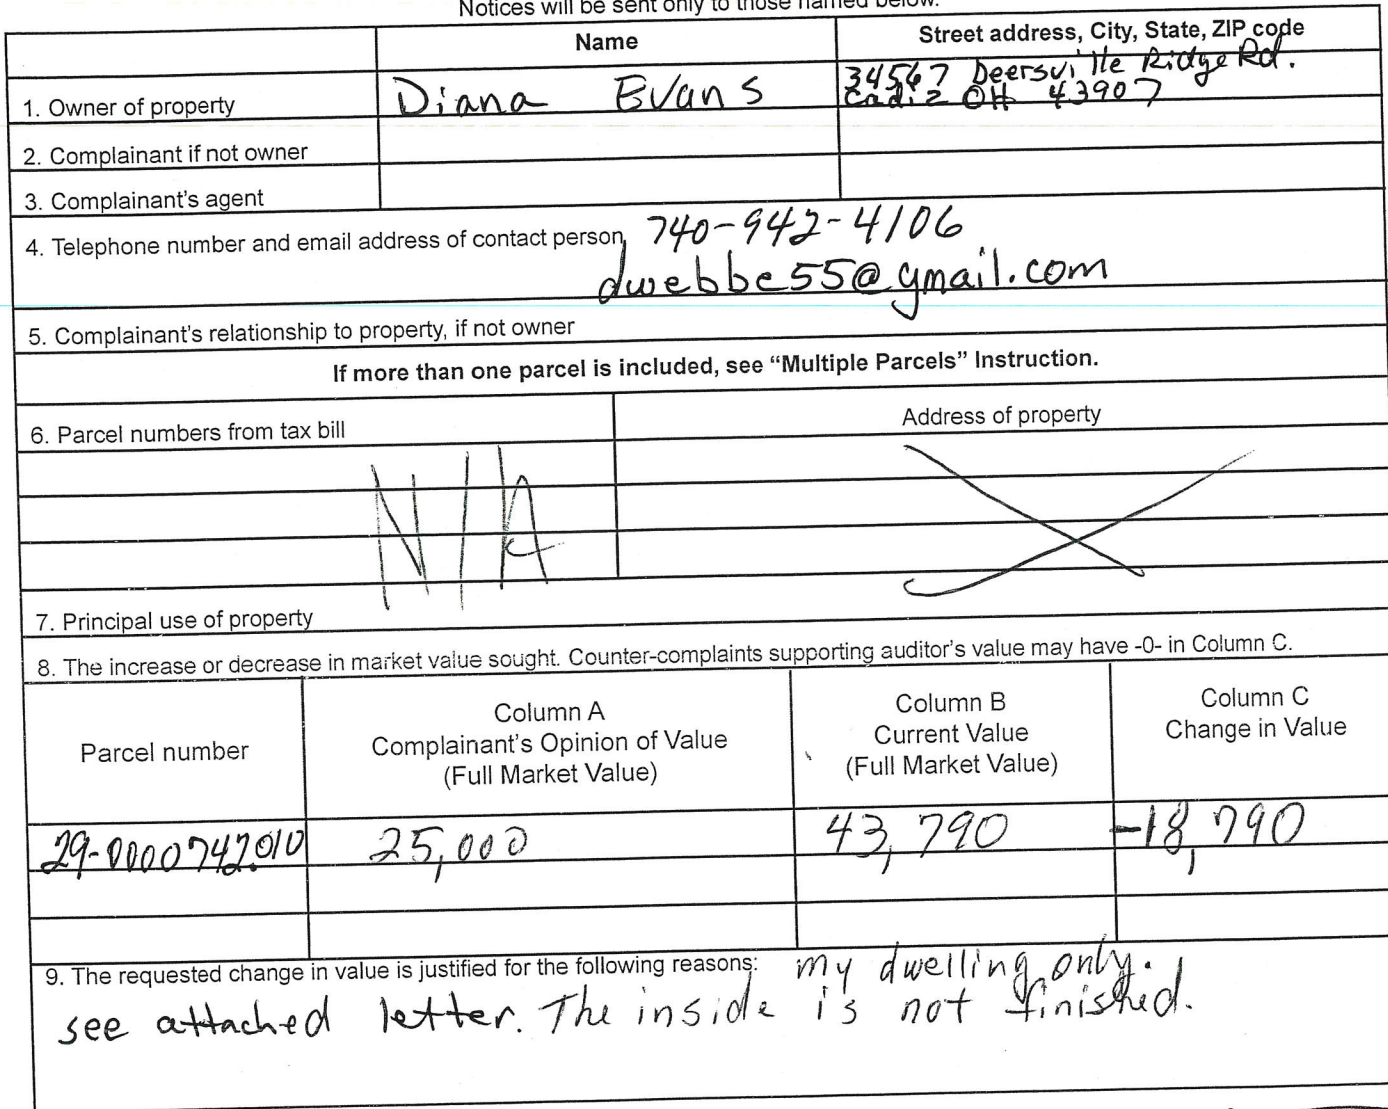 Notices will be sent only to those named below.
Name
Street address, City, State, ZIP code
1. Owner of property
Diana Evans
34567 Deersville Ridge Rd.
Cadiz OH 43907
2. Complainant if not owner
3. Complainant's agent
4. Telephone number and email address of contact person
740-942-4106
dwebbe55@gmail.com
5. Complainant's relationship to property, if not owner
If more than one parcel is included, see “Multiple Parcels” Instruction.
6. Parcel numbers from tax bill
Address of property
N/A
7. Principal use of property
8. The increase or decrease in market value sought. Counter-complaints supporting auditor's value may have -0- in Column C.
Parcel number
Column A
Complainant's Opinion of Value
(Full Market Value)
Column B
Current Value
(Full Market Value)
Column C
Change in Value
29-0000742.010
25,000
43,790
-18,790
9. The requested change in value is justified for the following reasons: my dwelling only.
see attached letter. The inside is not finished.